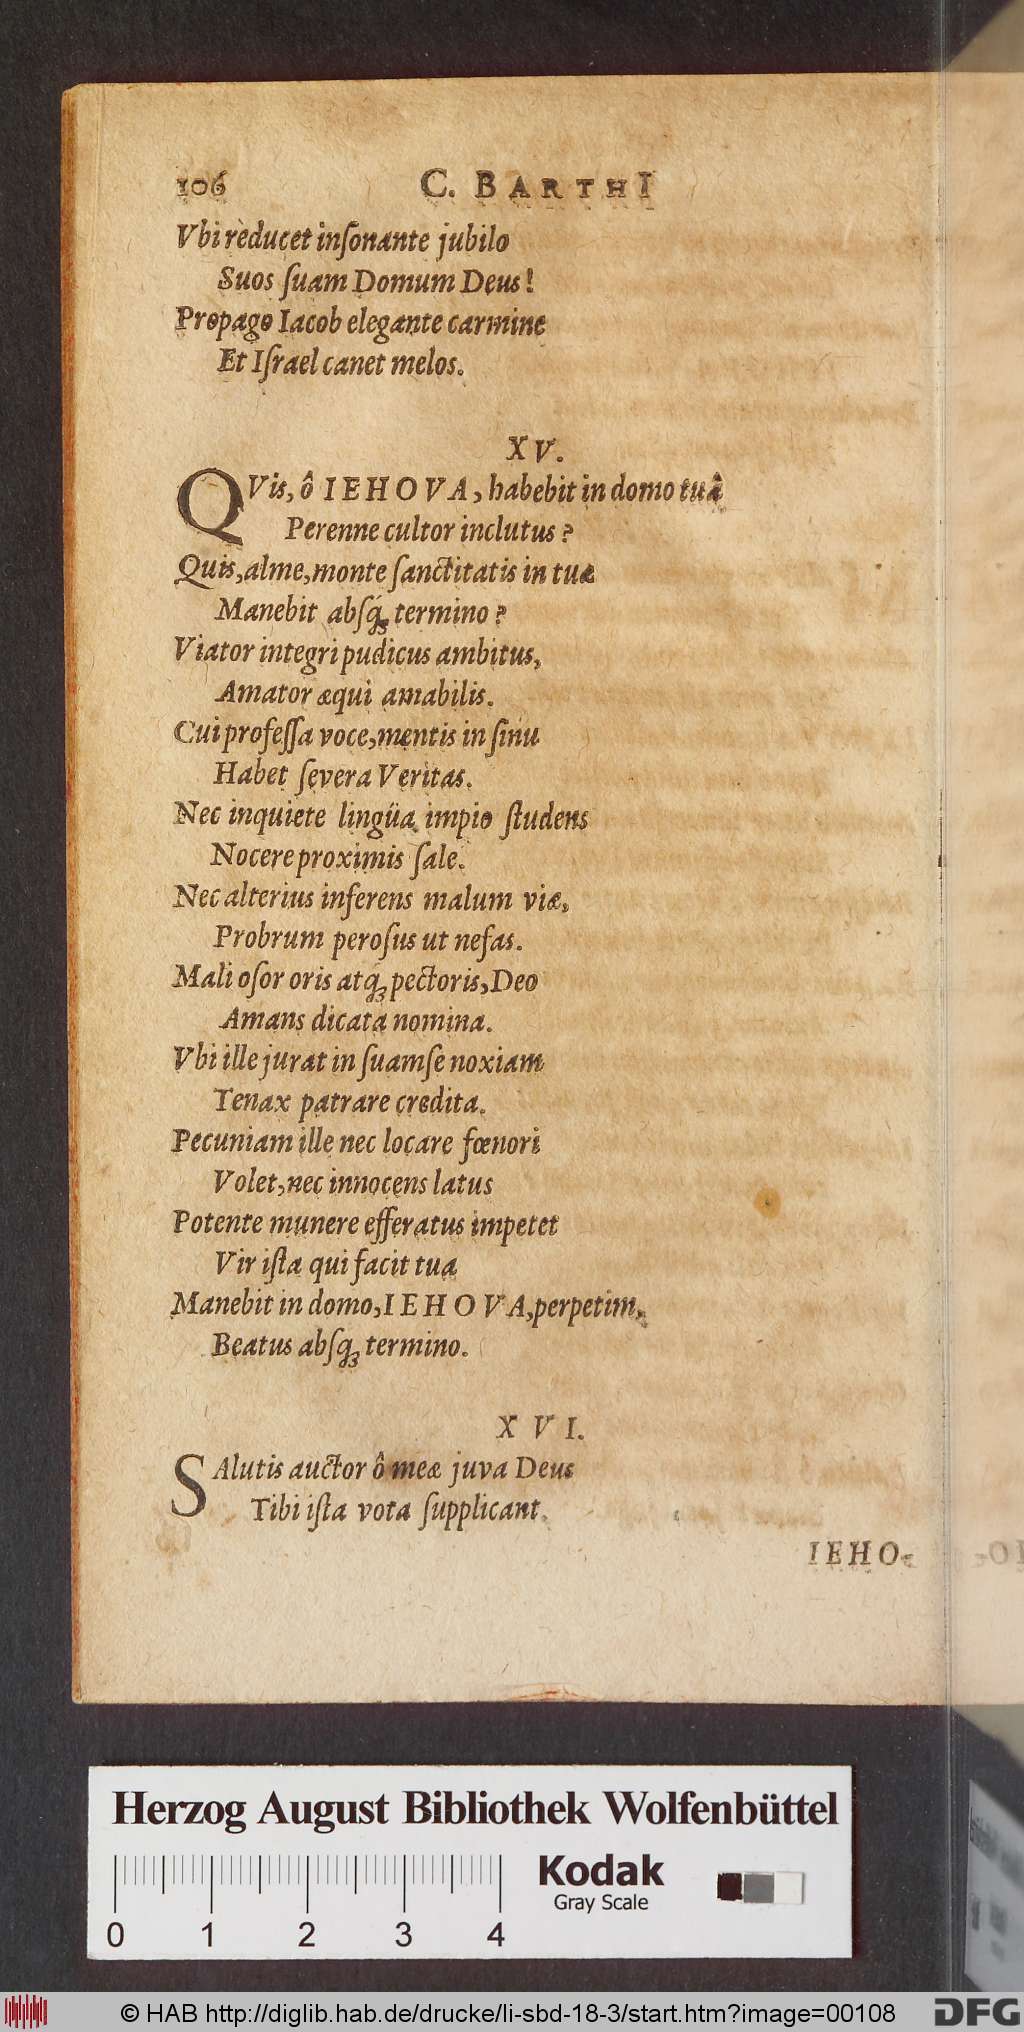 106 C. BARTHI
Vbi rèducet inſonante jubilo
Suos ſuam Domum Deus!
Propago Iacob elegante carmine
Et Iſrael canet melos.
XV.
QVis, ô IEHOVA, habebit in domo tuâ
Perenne cultor inclutus?
Quis, alme, monte ſanctitatis in tuæ
Manebit abſq́; termino?
Viator integri pudicus ambitus,
Amator æqui amabilis.
Cui profeſſa voce, mentis in ſinu
Habet ſevera Veritas.
Nec inquiete lingüa impio ſtudens
Nocere proximis ſale.
Nec alterius inferens malum viæ,
Probrum peroſus ut nefas.
Mali oſor oris atq; pectoris, Deo
Amans dicata nomina.
Vbi ille jurat in ſuamſe noxiam
Tenax patrare credita.
Pecuniam ille nec locare fœnori
Volet, nec innocens latus
Potente munere efferatus impetet
Vir iſta qui facit tua
Manebit in domo, IEHOVA, perpetim,
Beatus abſq; termino.
XVI.
SAlutis auctor ô meæ juva Deus
Tibi iſta vota ſupplicant.
IEHO-
Herzog August Bibliothek Wolfenbüttel
Kodak
Gray Scale
0 1 2 3 4
© HAB http://diglib.hab.de/drucke/li-sbd-18-3/start.htm?image=00108
DFG